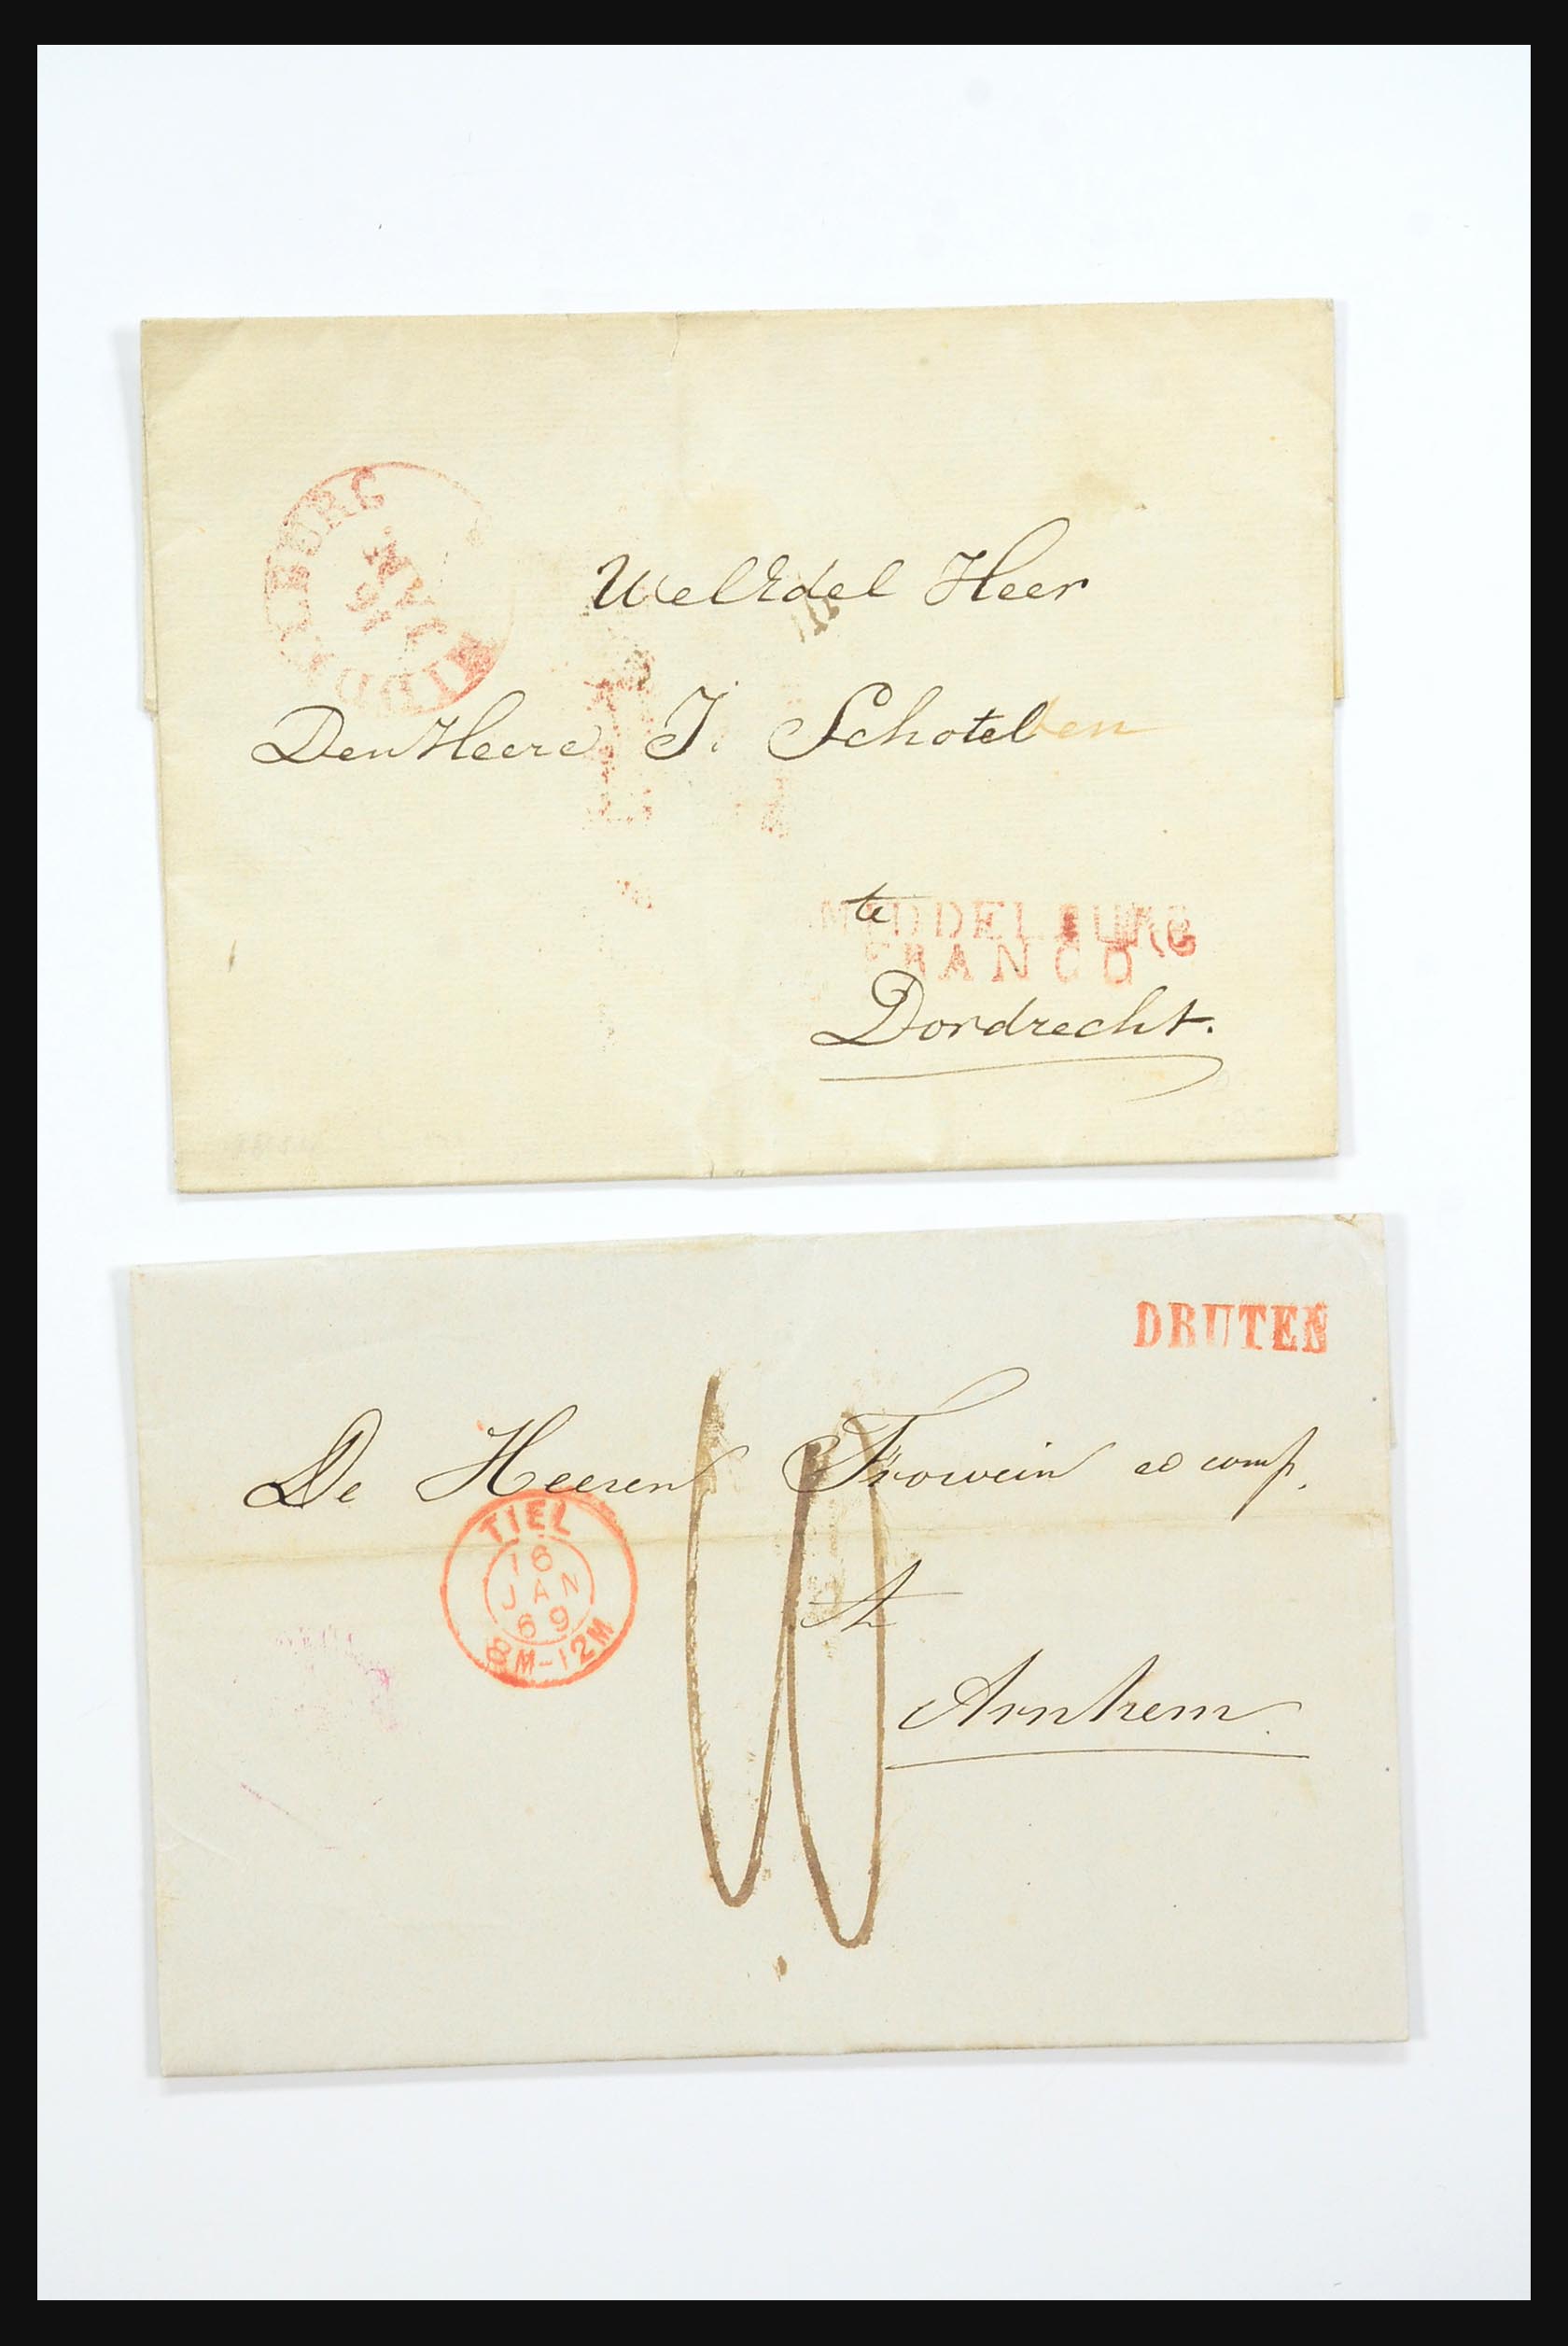 MIDDELBURG
WelEdel Heer
Den Heere J. Schotel
te
MIDDELBURG
FRANCO
Dordrecht.
DRUTEN
De Heeren Frowein en comp.
TIEL
16
JAN
69
8M-12M
te
Arnhem